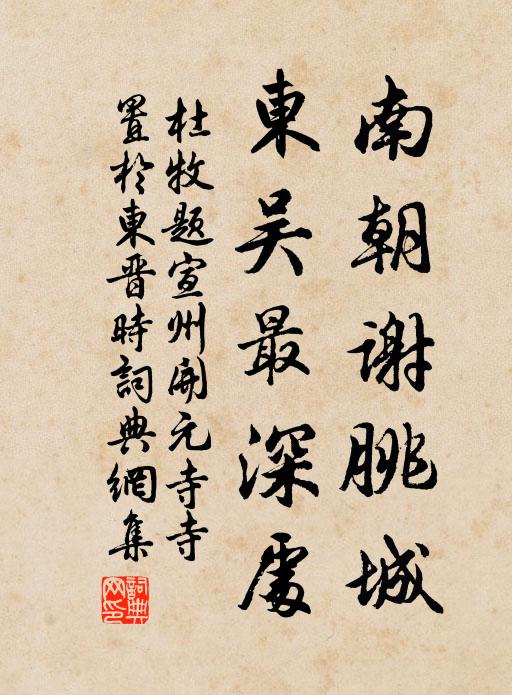 南朝謝朓城
東吴最深處
杜牧题宣州開元寺寺
置於東晋時詞典網集
詞典網印